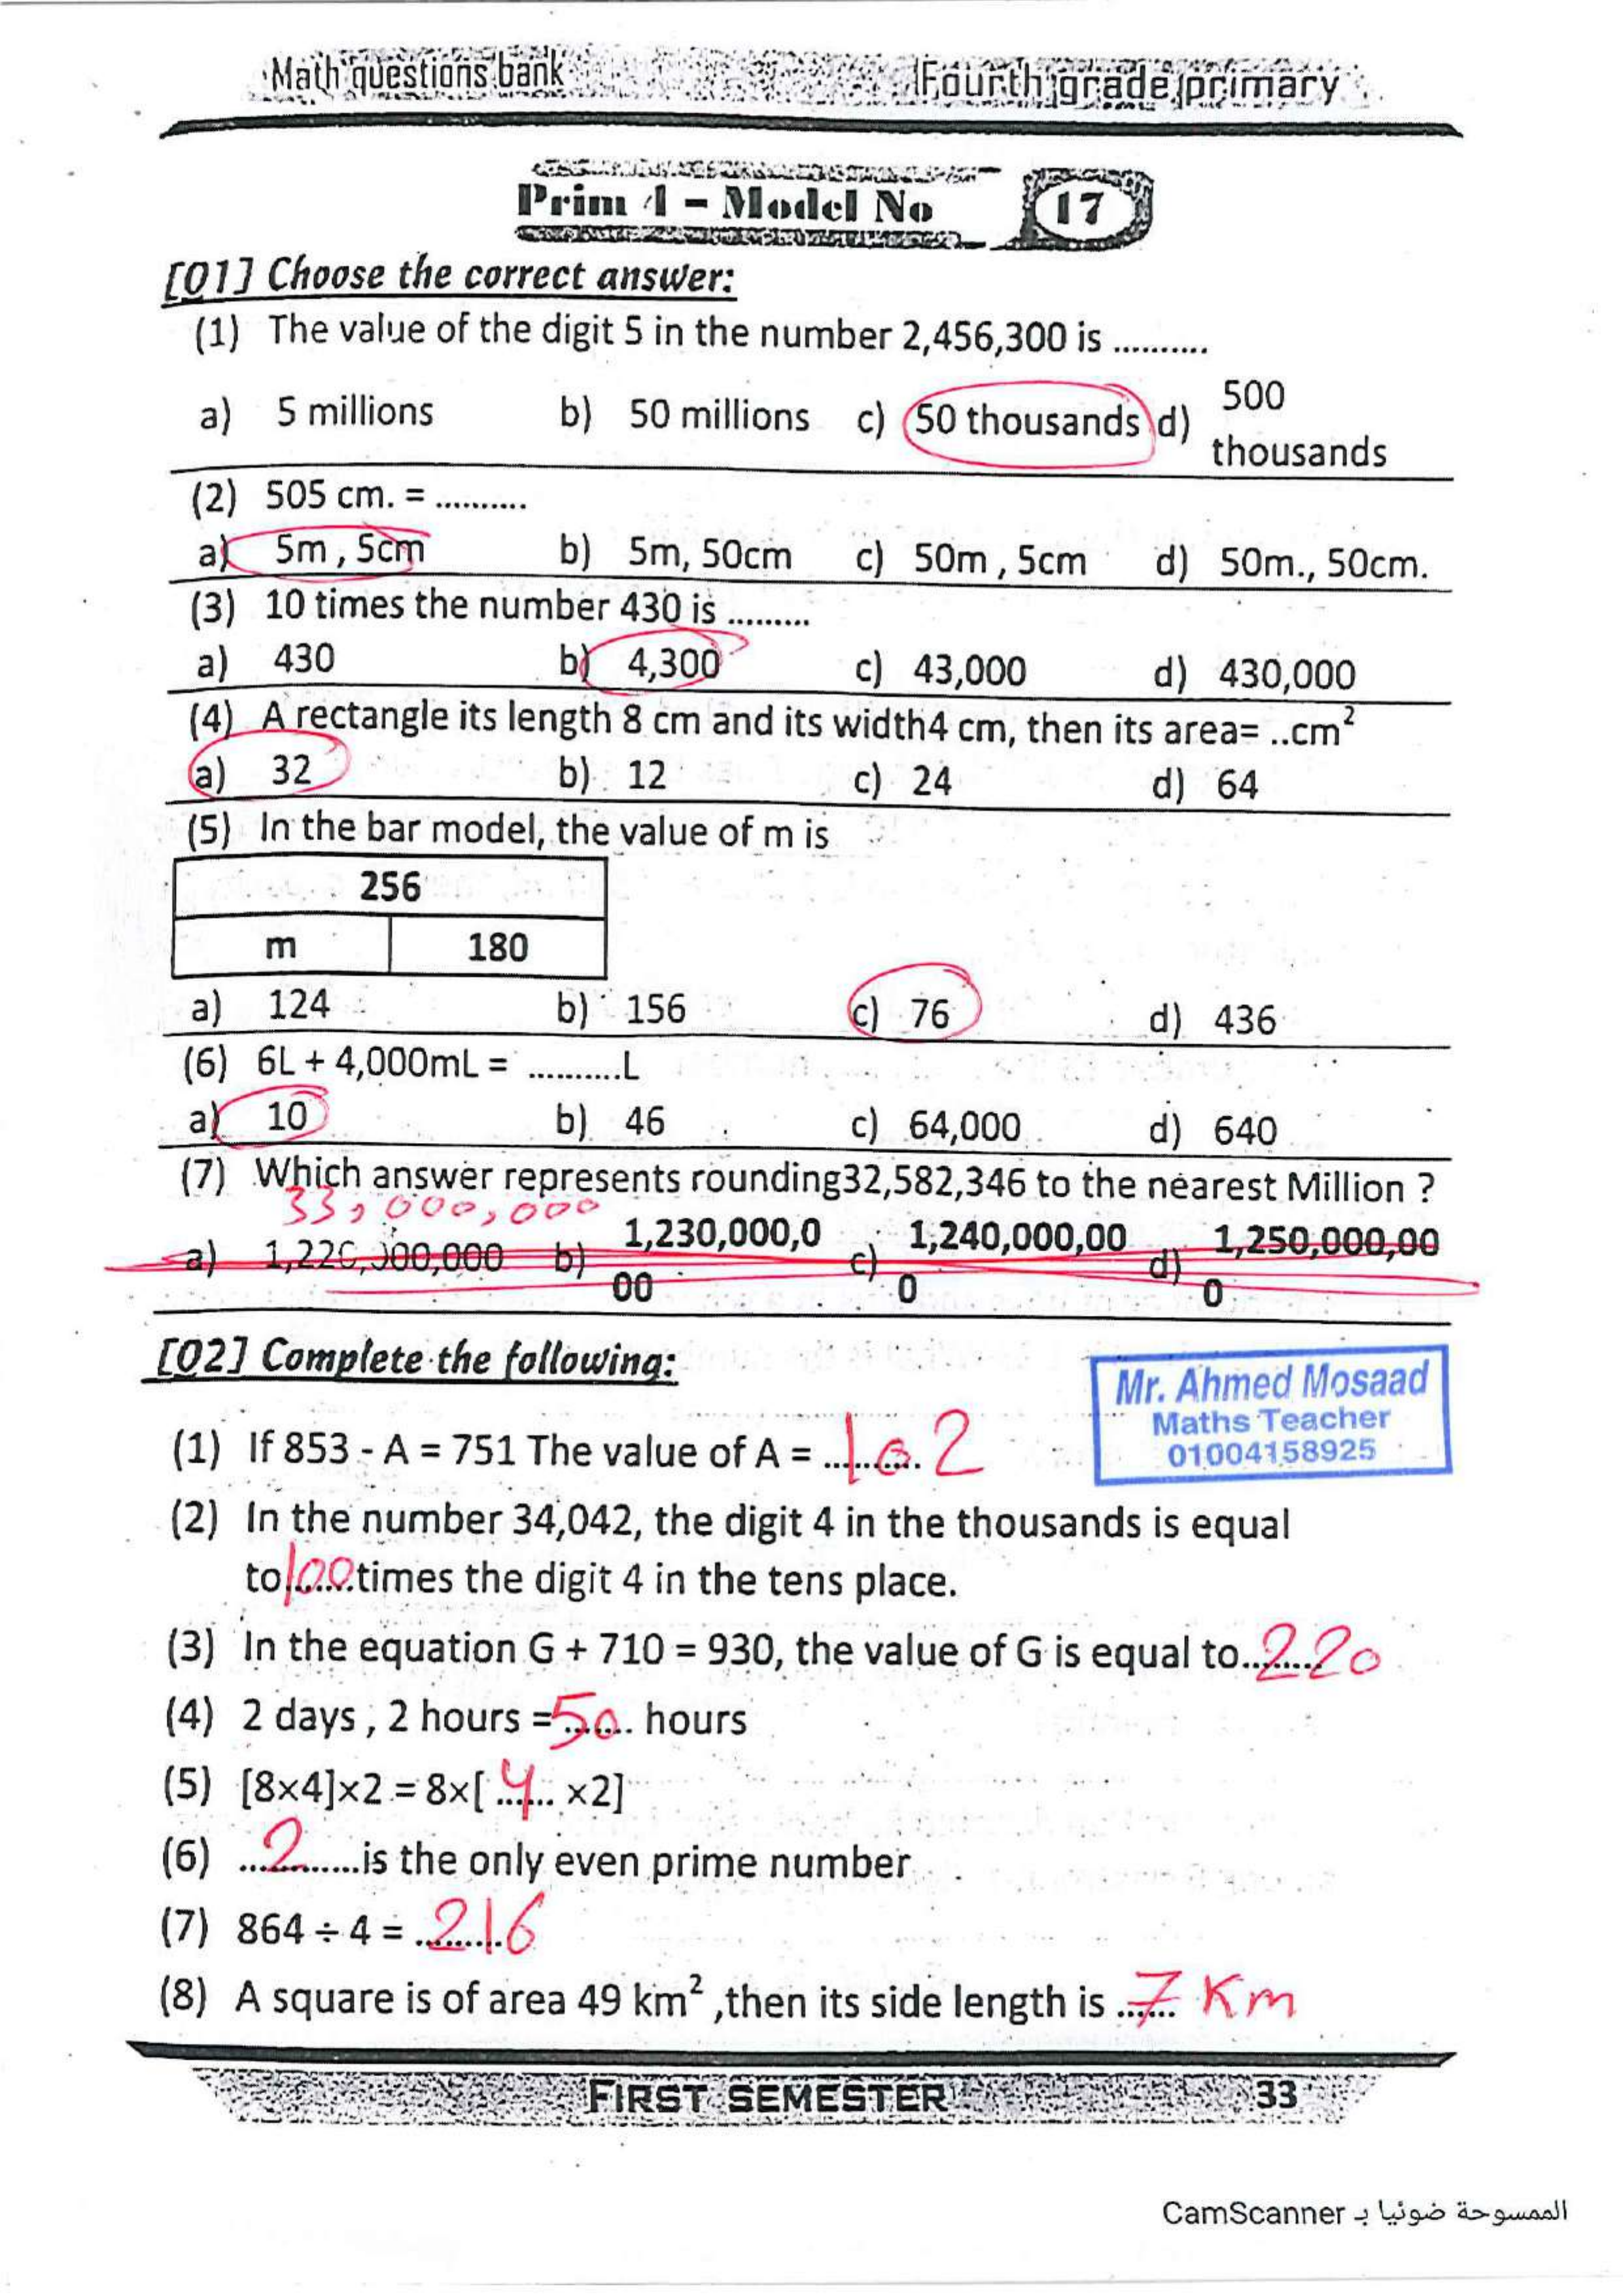 Math questions bank
Fourth grade primary
Prim 4 - Model No 17
[Q1] Choose the correct answer:
(1) The value of the digit 5 in the number 2,456,300 is ..........
a) 5 millions b) 50 millions c) 50 thousands d) 500 thousands
(2) 505 cm. = ..........
a) 5m , 5cm b) 5m, 50cm c) 50m , 5cm d) 50m., 50cm.
(3) 10 times the number 430 is .........
a) 430 b) 4,300 c) 43,000 d) 430,000
(4) A rectangle its length 8 cm and its width4 cm, then its area= ..cm²
a) 32 b) 12 c) 24 d) 64
(5) In the bar model, the value of m is
256
m 180
a) 124 b) 156 c) 76 d) 436
(6) 6L + 4,000mL = ..........L
a) 10 b) 46 c) 64,000 d) 640
(7) Which answer represents rounding32,582,346 to the nearest Million ?
33,000,000
a) 1,220,000,000 b) 1,230,000,0 c) 1,240,000,00 d) 1,250,000,00
00 0 0
[Q2] Complete the following:
Mr. Ahmed Mosaad
Maths Teacher
01004158925
(1) If 853 - A = 751 The value of A = ..102..
(2) In the number 34,042, the digit 4 in the thousands is equal
to 100 times the digit 4 in the tens place.
(3) In the equation G + 710 = 930, the value of G is equal to..220
(4) 2 days , 2 hours = 50 hours
(5) [8×4]×2 = 8×[ 4 ×2]
(6) ...2...is the only even prime number
(7) 864 ÷ 4 = 216
(8) A square is of area 49 km² ,then its side length is 7 Km
FIRST SEMESTER 33
الممسوحة ضوئيا بـ CamScanner